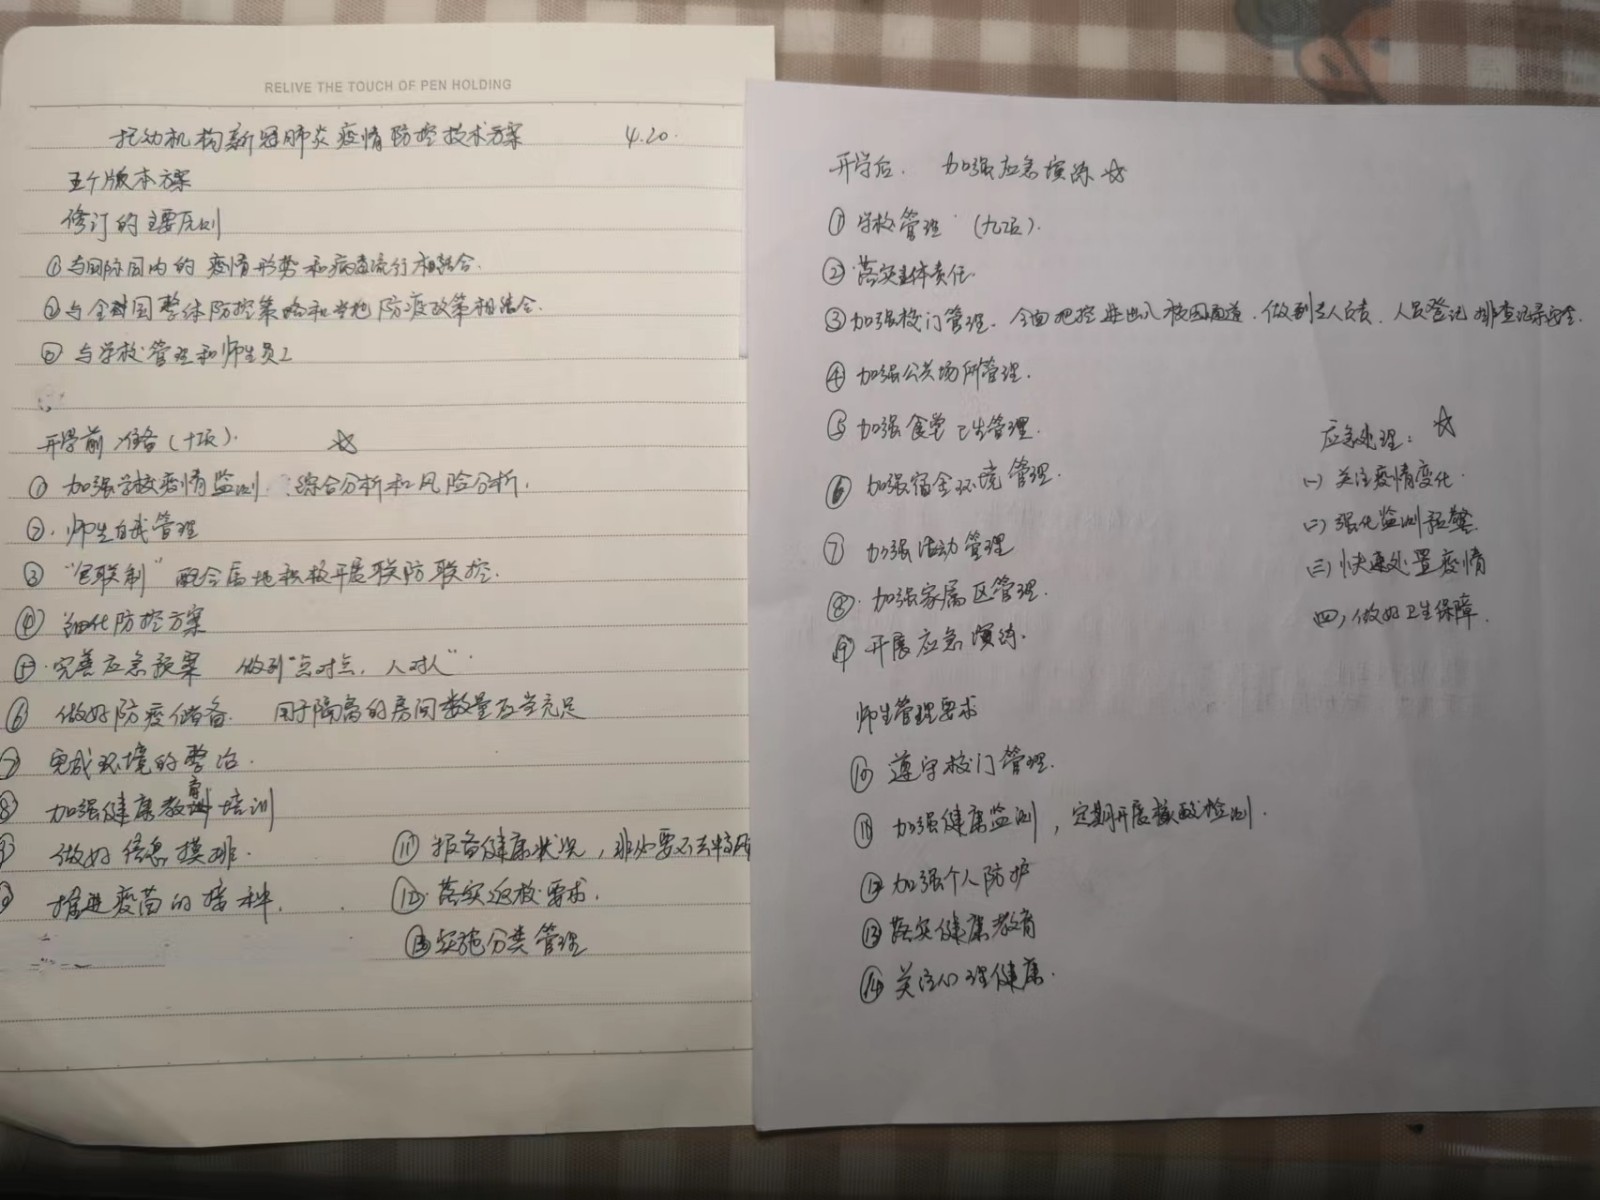 RELIVE THE TOUCH OF PEN HOLDING
托幼机构新冠肺炎疫情防控技术方案 4.20.
五个版本方案
修订的主要原则
①与国际国内的疫情形势和病毒流行相结合.
②与全国整体防控策略和当地防疫政策相结合.
③与学校管理和师生员工
开学前准备(十项). ☆
①加强学校疫情监测 综合分析和风险分析.
②.师生自我管理
③"包联制" 配合属地积极开展联防联控.
④细化防控方案
⑤.完善应急预案 做到"点对点,人对人".
⑥做好防疫储备. 用于隔离的房间数量应当充足
⑦完成环境的整治.
⑧加强健康教育培训
做好信息摸排.
推进疫苗的接种.
⑪报备健康状况,非必要不去
⑫.落实返校要求.
⑬实施分类管理
开学后. 加强应急演练☆
①学校管理(九项).
②落实主体责任.
③加强校门管理. 全面把控进出入校园通道.做到专人负责.人员登记 排查记录
④加强公共场所管理.
⑤加强食堂卫生管理.
⑥加强宿舍环境管理.
⑦加强活动管理
⑧.加强家属区管理.
⑨开展应急演练.
师生管理要求
⑩遵守校门管理.
⑪加强健康监测,定期开展核酸检测.
⑫加强个人防护
⑬落实健康教育
⑭关注心理健康.
应急处理: ☆
(一)关注疫情变化.
(二)强化监测预警.
(三)快速处置疫情
(四)做好卫生保障.